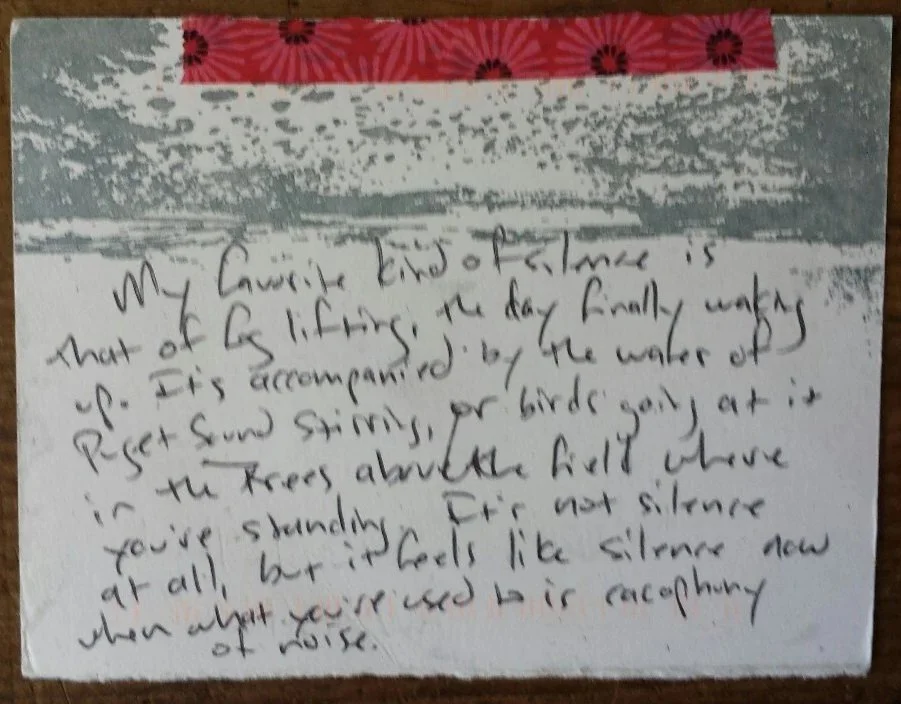 My favorite kind of silence is
that of fog lifting, the day finally waking
up. It's accompanied by the water of
Puget Sound stirring, or birds going at it
in the trees above the field where
you're standing. It's not silence
at all, but it feels like silence now
when what you're used to is cacophony
of noise.